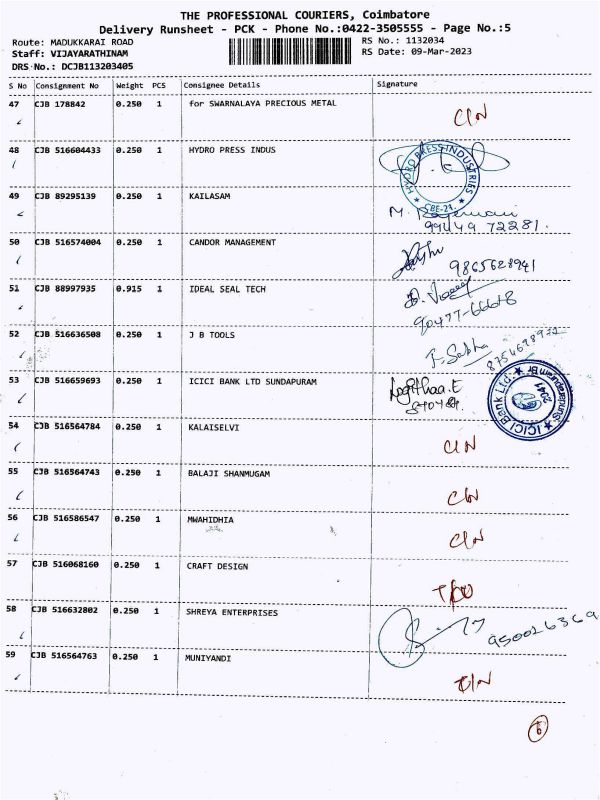 THE PROFESSIONAL COURIERS, Coimbatore
Delivery Runsheet - PCK - Phone No.:0422-3505555 - Page No.:5
Route: MADUKKARAI ROAD RS No.: 1132034
Staff: VIJAYARATHINAM RS Date: 09-Mar-2023
DRS No.: DCJB113203405
S No Consignment No Weight PCS Consignee Details Signature
47 CJB 178842 0.250 1 for SWARNALAYA PRECIOUS METAL C/N
48 CJB 516604433 0.250 1 HYDRO PRESS INDUS
HYDRO PRESS INDUSTRIES
CBE-21.
49 CJB 89295139 0.250 1 KAILASAM M.
99449 72281.
50 CJB 516574004 0.250 1 CANDOR MANAGEMENT
9865628941
51 CJB 88997935 0.915 1 IDEAL SEAL TECH
90477-66678
52 CJB 516636508 0.250 1 J B TOOLS
53 CJB 516659693 0.250 1 ICICI BANK LTD SUNDAPURAM Logithaa.E
ICICI Bank Ltd.
54 CJB 516564784 0.250 1 KALAISELVI C/N
55 CJB 516564743 0.250 1 BALAJI SHANMUGAM C/N
56 CJB 516586547 0.250 1 MWAHIDHIA C/N
57 CJB 516068160 0.250 1 CRAFT DESIGN
58 CJB 516632802 0.250 1 SHREYA ENTERPRISES
950026369
59 CJB 516564763 0.250 1 MUNIYANDI C/N
6